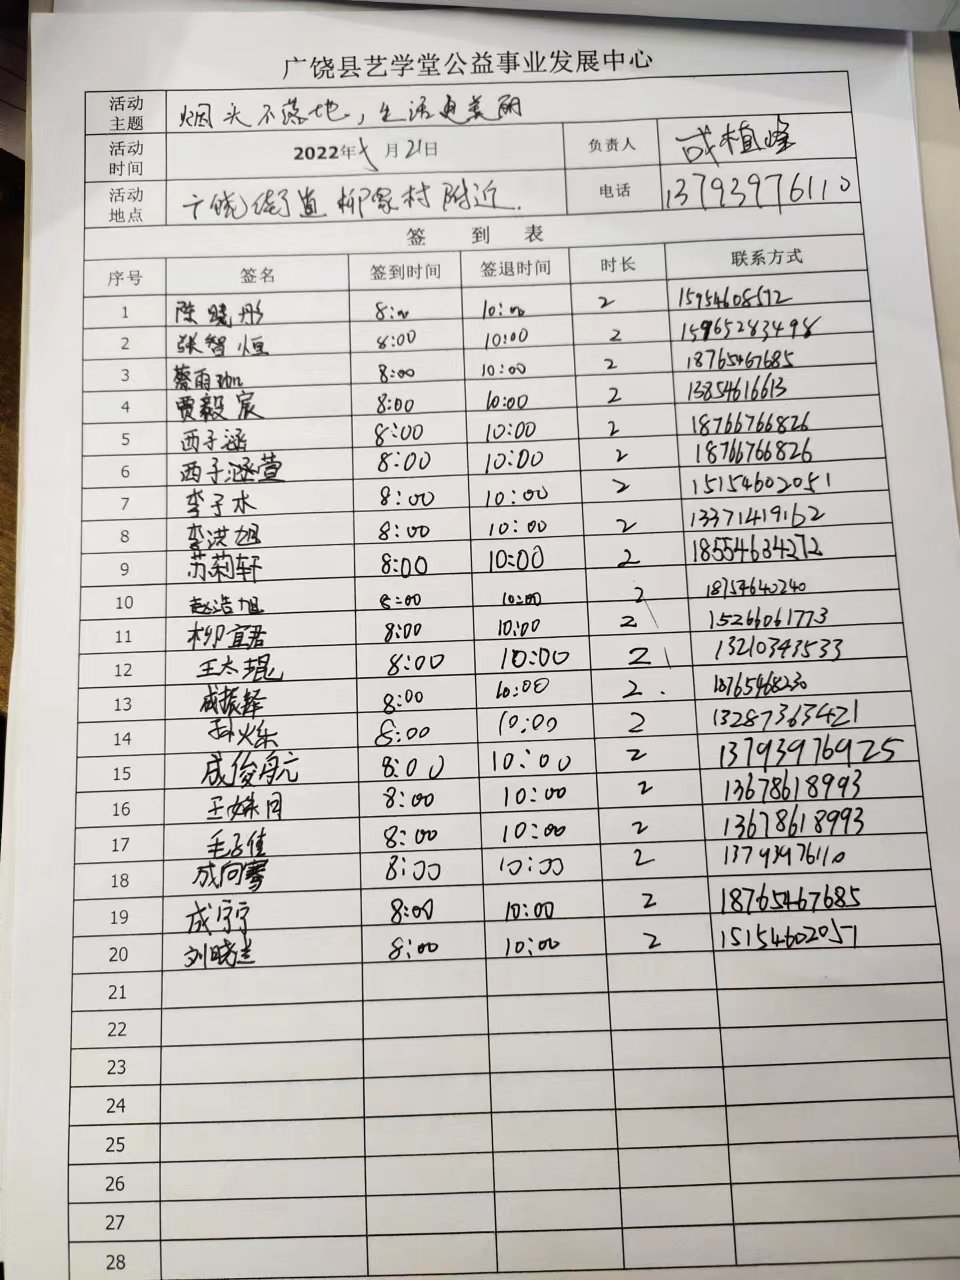 广饶县艺学堂公益事业发展中心
活动主题 烟头不落地，生活更美丽
活动时间 2022年 月21日 负责人 成植峰
活动地点 广饶街道柳家村附近. 电话 13793976110
签 到 表
序号 签名 签到时间 签退时间 时长 联系方式
1 陈晓彤 8:00 10:00 2 15954608572
2 张智恒 8:00 10:00 2 15965283498
3 蔡雨珈 8:00 10:00 2 18765467685
4 贾毅宸 8:00 10:00 2 13854616613
5 西子涵 8:00 10:00 2 18766766826
6 西子涵萱 8:00 10:00 2 18766766826
7 李子水 8:00 10:00 2 15154602051
8 李洪旭 8:00 10:00 2 13371419162
9 苏莉轩 8:00 10:00 2 18554634272
10 赵浩旭 8:00 10:00 2 18754640240
11 柳宜君 8:00 10:00 2 15266061773
12 王太琨 8:00 10:00 2 13210343533
13 成振铎 8:00 10:00 2 18765468230
14 孙火乐 8:00 10:00 2 13287363421
15 成俊航 8:00 10:00 2 13793976925
16 王姝月 8:00 10:00 2 13678618993
17 毛子佳 8:00 10:00 2 13678618993
18 成向骞 8:00 10:00 2 13793976110
19 成宁宁 8:00 10:00 2 18765467685
20 刘晓兰 8:00 10:00 2 15154602051
21
22
23
24
25
26
27
28